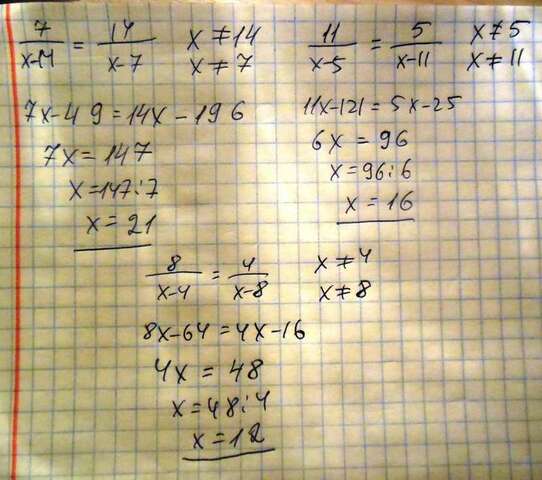 7/(x-14) = 14/(x-7) x ≠ 14
x ≠ 7
7x-49=14x-196
7x=147
x=147:7
x=21
11/(x-5) = 5/(x-11) x ≠ 5
x ≠ 11
11x-121=5x-25
6x=96
x=96:6
x=16
8/(x-4) = 4/(x-8) x ≠ 4
x ≠ 8
8x-64=4x-16
4x=48
x=48:4
x=12